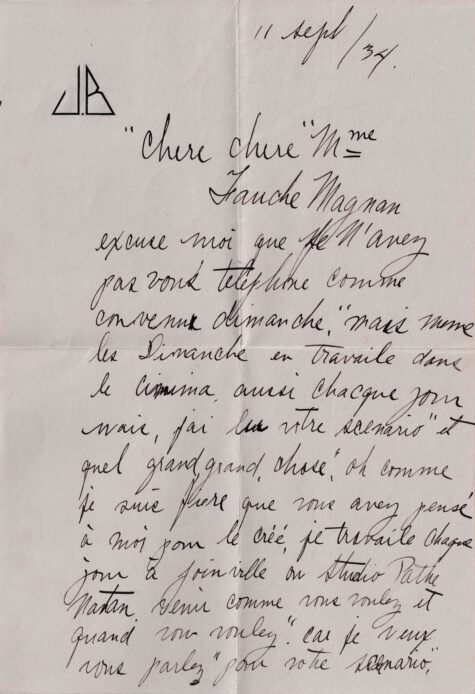 11 sept/34.
J.B
"Chere chere" Mme
Fauche Magnan
excuse moi que je N'avez
pas vous telephone comme
convenue dimanche, "mais meme
les Dimanche en travaile dans
le cinima, aussi chacque jour
mais, j'ai lu votre scenario" et
quel grand grand, chose", oh comme
je suis fiere que vous avez pensé
à moi pour le créé, je travaile chaque
jour à joinville au Studio Pathe
Natan, venir comme vous voulez et
quand vous voulez". car je veux
vous parlez "pour votre scenario",